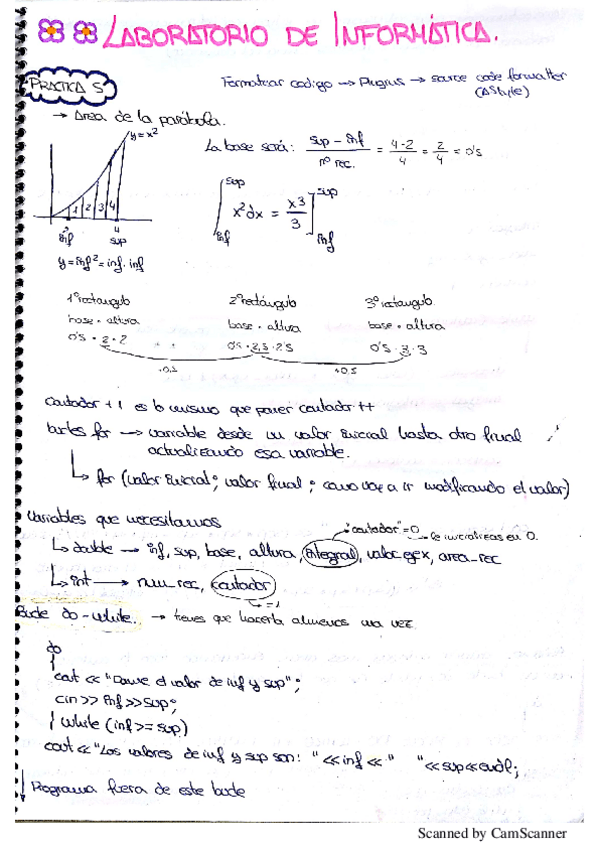 LABORATORIO DE INFORMÁTICA.
PRACTICA 5
Formatear codigo → Plugins → source code formatter
(AStyle)
→ Area de la parábola.
y=x²
La base será: sup - inf / nº rec. = 4-2 / 4 = 2 / 4 = 0'5
1 2 3 4
inf
4
sup
∫ sup inf x²dx = x3 / 3 ] sup inf
y=inf²=inf.inf
1º rectangulo 2º rectángulo 3º rectangulo
base · altura base · altura base · altura
0'5 · 2 · 2 0'5 · 2,5 · 2'5 0'5 · 3 · 3
+0,5 +0,5
contador + 1 es lo mismo que poner contador ++
bucles for → variable desde un valor inicial hasta otro final
actualizando esa variable.
↳ for (valor inicial; valor final; como voy a ir modificando el valor)
Variables que necesitamos
"contador"=0 → le inicializas en 0.
↳ double → inf, sup, base, altura, integral, valor_eje_x, area_rec
↳ int → num_rec, contador
→ =1
Bucle do-while. → tienes que hacerla almenos una vez.
do
{
cout << "Dame el valor de inf y sup";
cin >> inf >> sup;
} while (inf >= sup)
cout << "Los valores de inf y sup son: " << inf << " " << sup << endl;
↓ Programa fuera de este bucle
Scanned by CamScanner